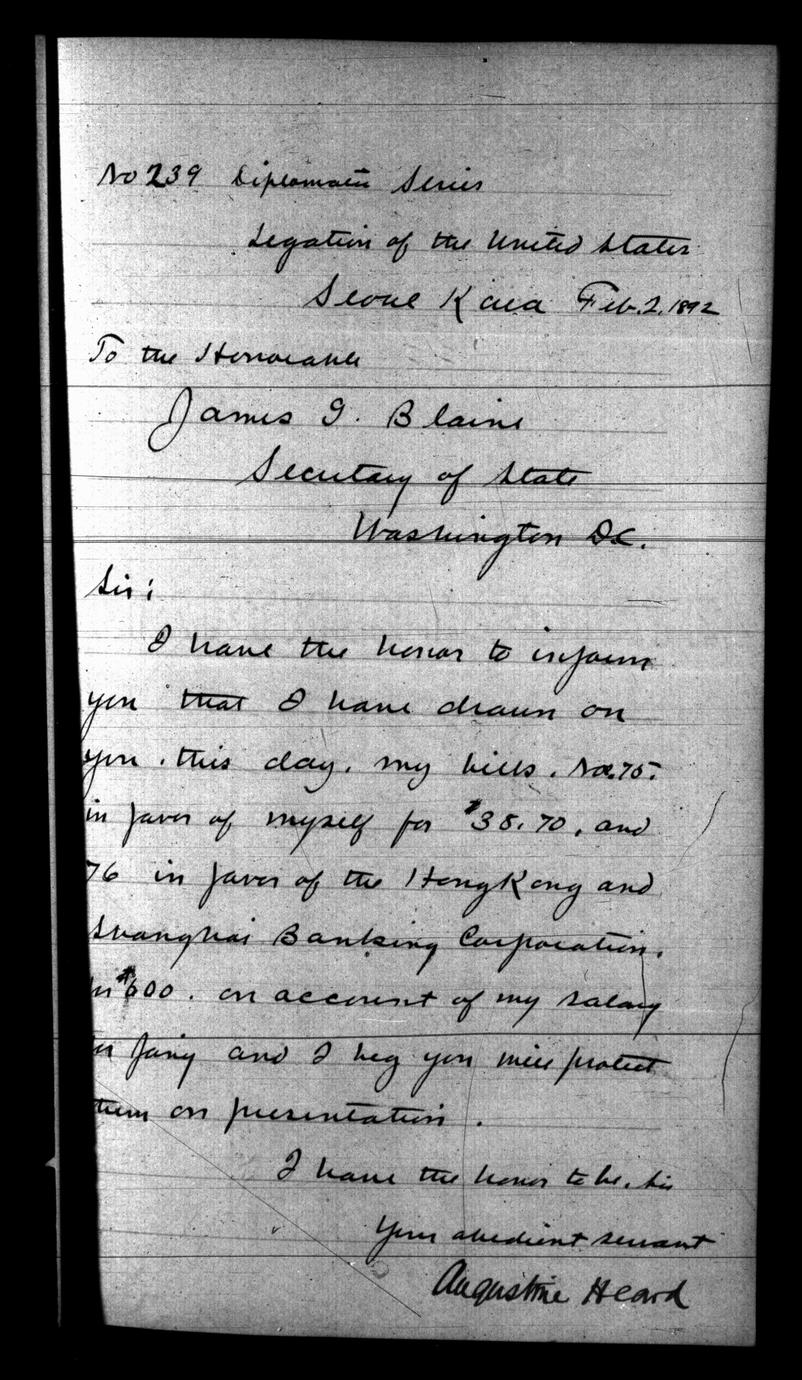 No 239 Diplomatic Series
Legation of the United States
Seoul Korea Feb. 2. 1892
To the Honorable
James G. Blaine
Secretary of State
Washington D.C.
Sir:
I have the honor to inform
you that I have drawn on
you, this day, my bills, Nos. 75.
in favor of myself for $38.70, and
76 in favor of the HongKong and
Shanghai Banking Corporation,
for $600. on account of my salary
for Jan'y and I beg you will protect
them on presentation.
I have the honor to be, Sir
Your obedient servant
Augustine Heard